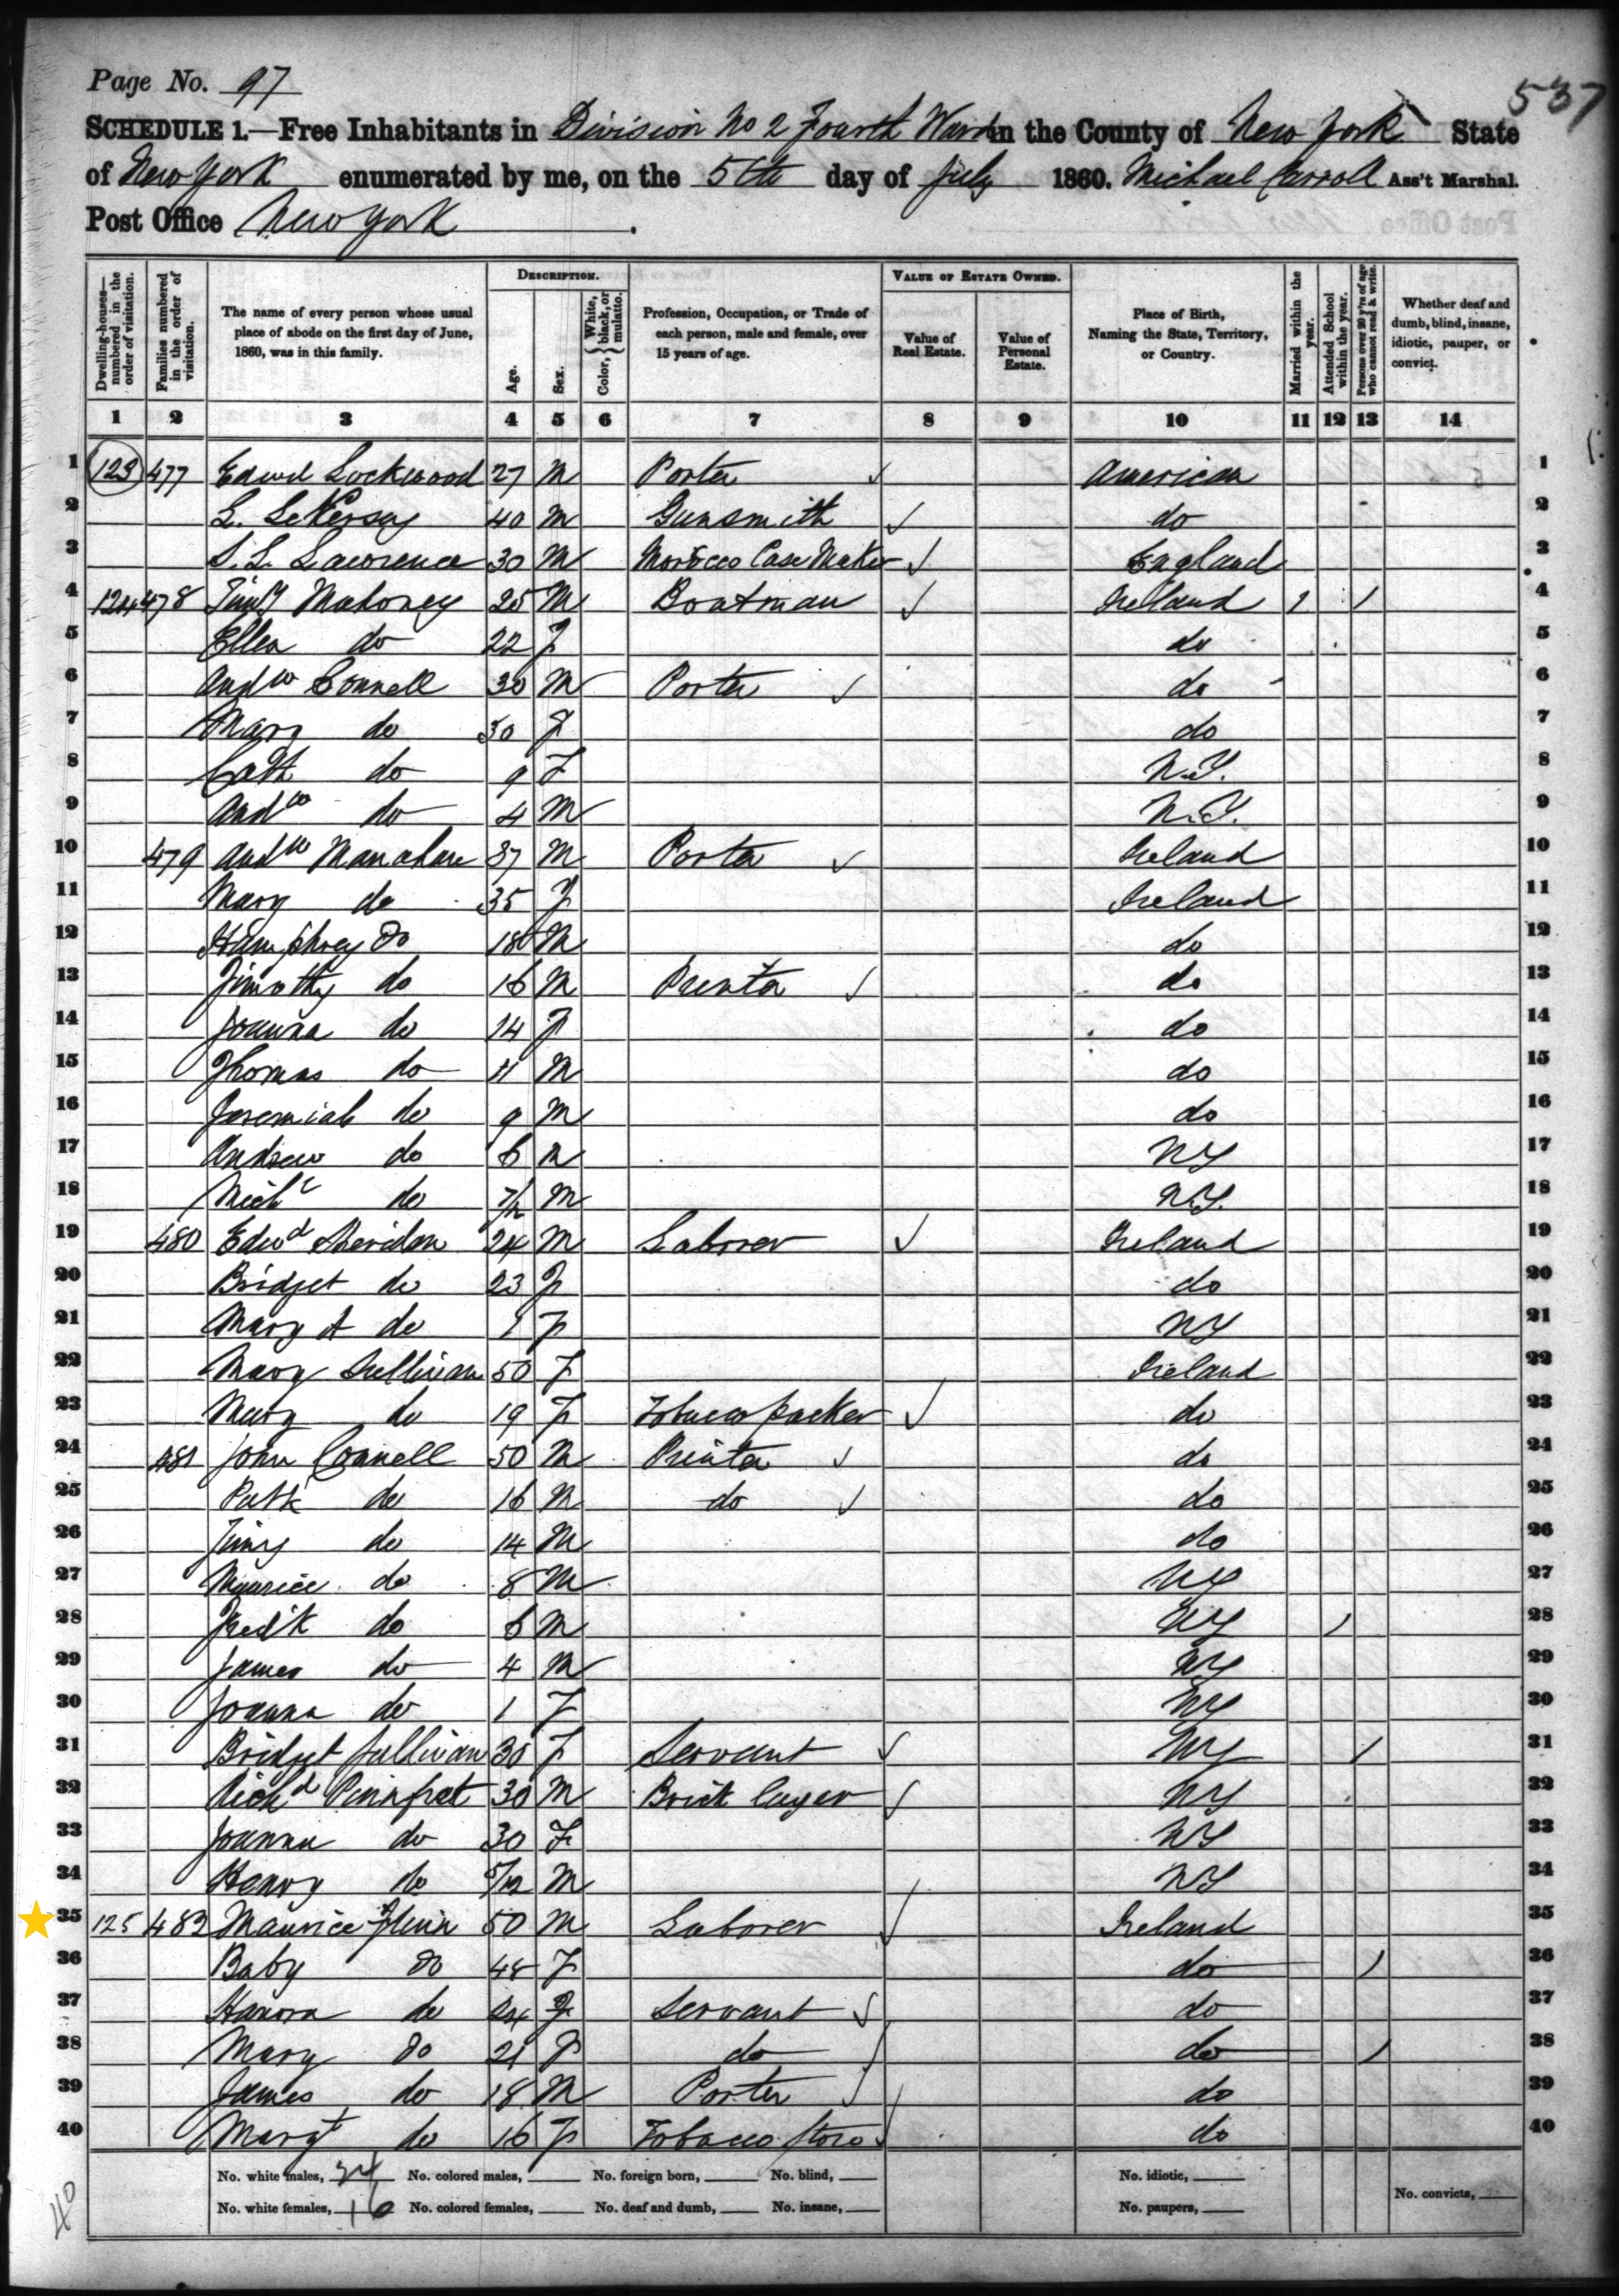 Page No. 97
537
SCHEDULE 1.—Free Inhabitants in Division No 2 Fourth Ward in the County of New York State
of New York enumerated by me, on the 5th day of July 1860. Michael Carroll Ass't Marshal.
Post Office New York.
Dwelling-houses—numbered in the order of visitation.
Families numbered in the order of visitation.
The name of every person whose usual place of abode on the first day of June, 1860, was in this family.
DESCRIPTION.
Age.
Sex.
Color, White, black, or mulatto.
Profession, Occupation, or Trade of each person, male and female, over 15 years of age.
VALUE OF ESTATE OWNED.
Value of Real Estate.
Value of Personal Estate.
Place of Birth, Naming the State, Territory, or Country.
Married within the year.
Attended School within the year.
Persons over 20 y'rs of age who cannot read & write.
Whether deaf and dumb, blind, insane, idiotic, pauper, or convict.
1 2 3 4 5 6 7 8 9 10 11 12 13 14
1 123 477 Edwd Lockwood 27 M Porter American 1
2 L. 40 M Gunsmith do 2
3 S. L. Lawrence 30 M Morocco Case Maker England 3
4 124 478 Timy Mahoney 25 M Boatman Ireland 1 1 4
5 Ellen do 22 F do 5
6 Andw Connell 30 M Porter do 6
7 Mary do 30 F do 7
8 Cath do 9 F N.Y. 8
9 Andw do 4 M N.Y. 9
10 479 Andw Manahan 37 M Porter Ireland 10
11 Mary do 35 F Ireland 11
12 Humphrey do 18 M do 12
13 Timothy do 16 M Printer do 13
14 Joanna do 14 F do 14
15 Thomas do 11 M do 15
16 Jeremiah do 9 M do 16
17 Andrew do 6 M NY 17
18 Michl do 7/12 M N.Y. 18
19 480 Edwd Sheridan 24 M Laborer Ireland 19
20 Bridget do 23 F do 20
21 Mary A do 1 F NY 21
22 Mary Sullivan 50 F Ireland 22
23 Mary do 19 F Tobacco packer do 23
24 481 John Connell 50 M Printer do 24
25 Patk do 16 M do do 25
26 Timy do 14 M do 26
27 Maurice do 8 M NY 27
28 Fredk do 6 M NY 1 28
29 James do 4 M NY 29
30 Joanna do 1 F NY 30
31 Bridget Sullivan 30 F Servant NY 1 31
32 Richd 30 M Brick layer NY 32
33 Joanna do 30 F NY 33
34 Henry do M NY 34
35 125 482 Maurice Flinn 50 M Laborer Ireland 35
36 Baby do 48 F do 1 36
37 Hanora do 24 F Servant do 37
38 Mary do 21 F do do 1 38
39 James do 18 M Porter do 39
40 Margt do 16 F Tobacco Store do 40
No. white males, 24 No. colored males, No. foreign born, No. blind, No. idiotic,
No. white females, 16 No. colored females, No. deaf and dumb, No. insane, No. paupers, No. convicts,
40